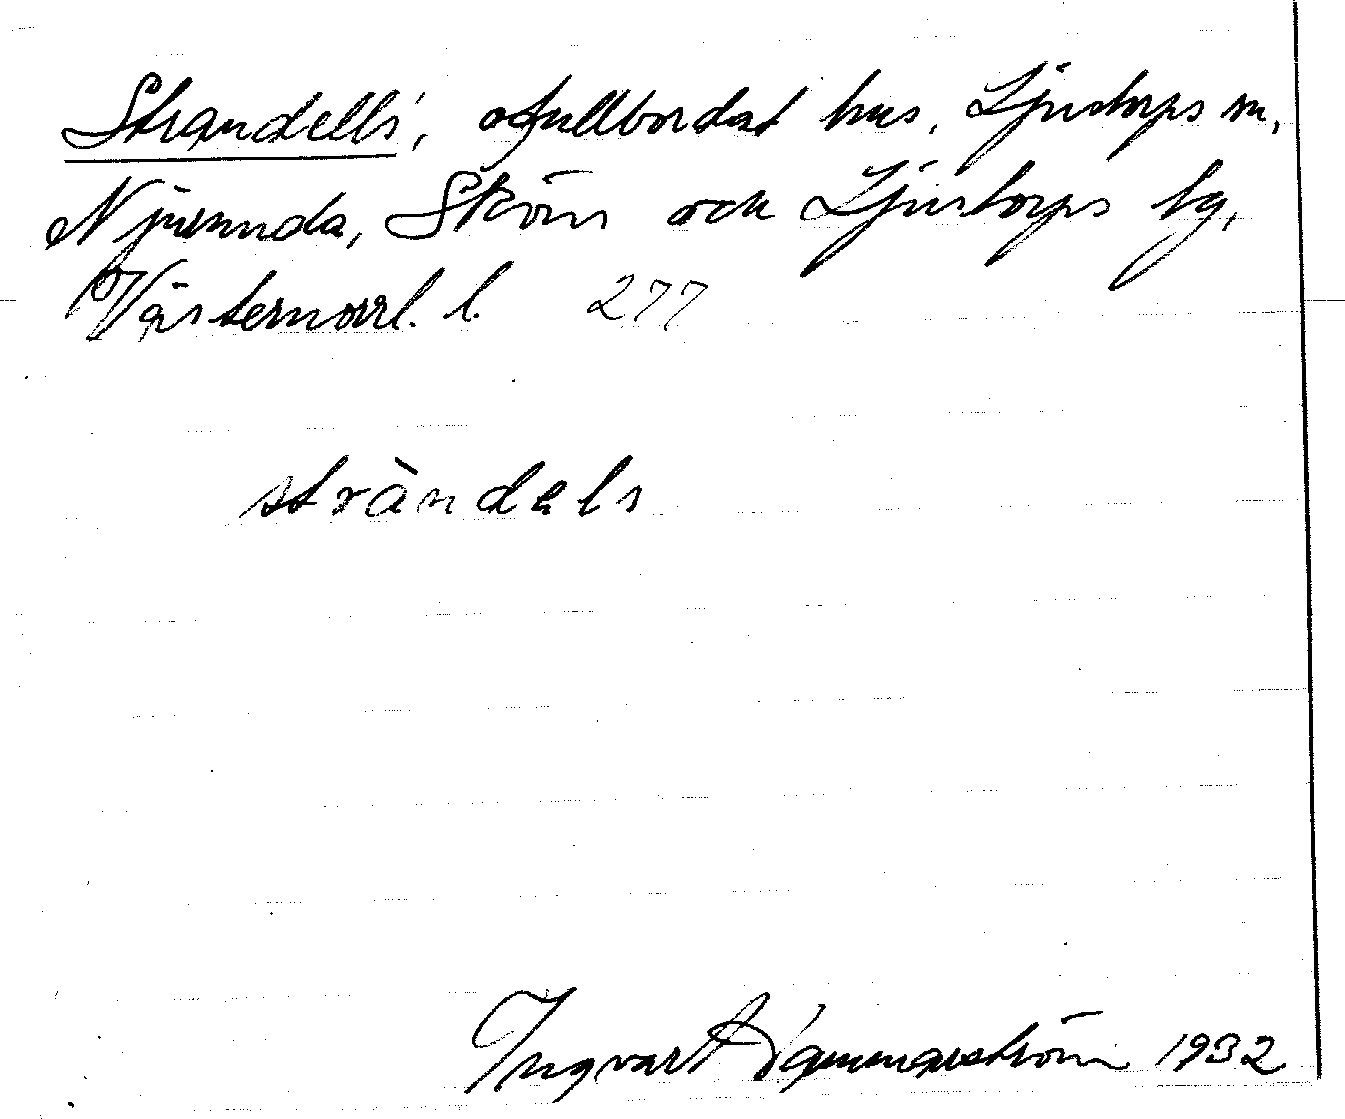 Strandells', ofullbordat hus, Ljustorps sn,
Njurunda, Sköns och Ljustorps tg,
Västernorrl. l. 277
stràndels
Ingvart Hammarström 1932